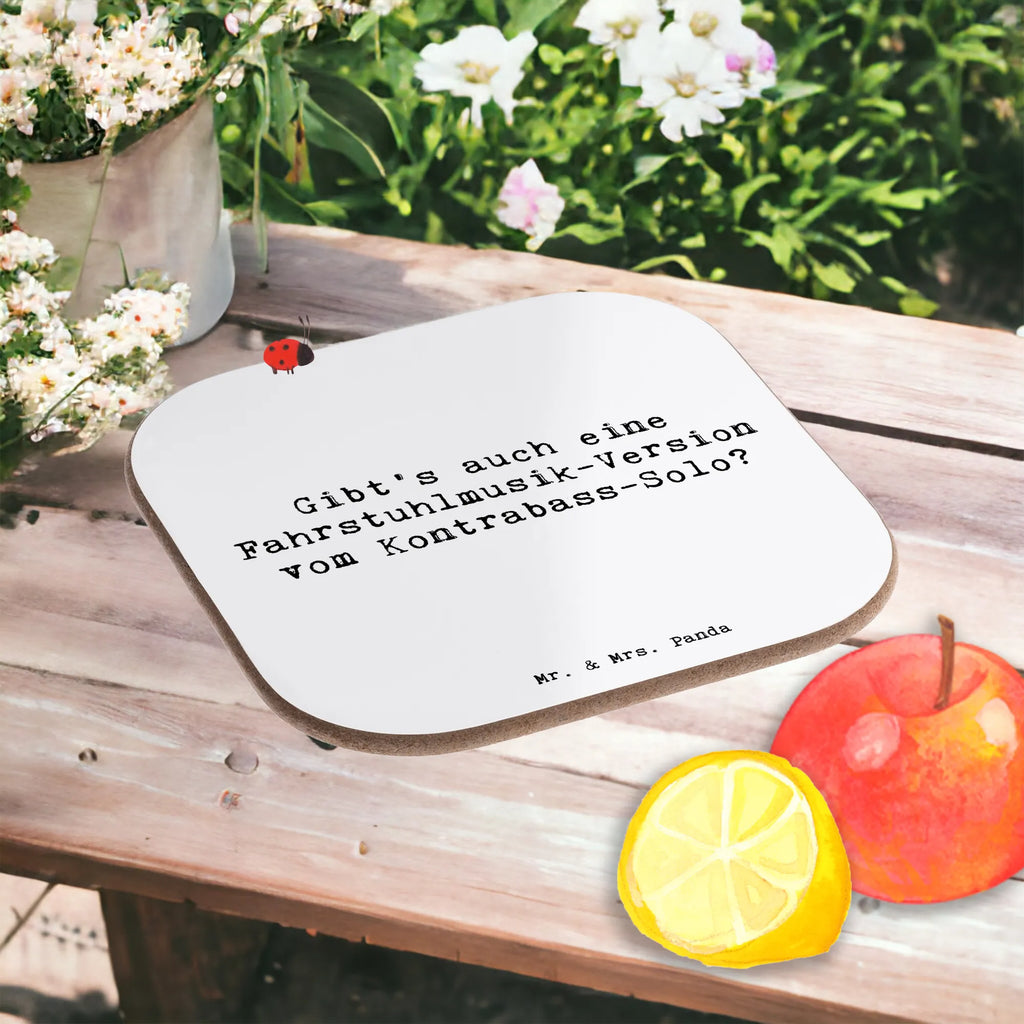 Gibt's auch eine
Fahrstuhlmusik-Version
vom Kontrabass-Solo?
Mr. & Mrs. Panda